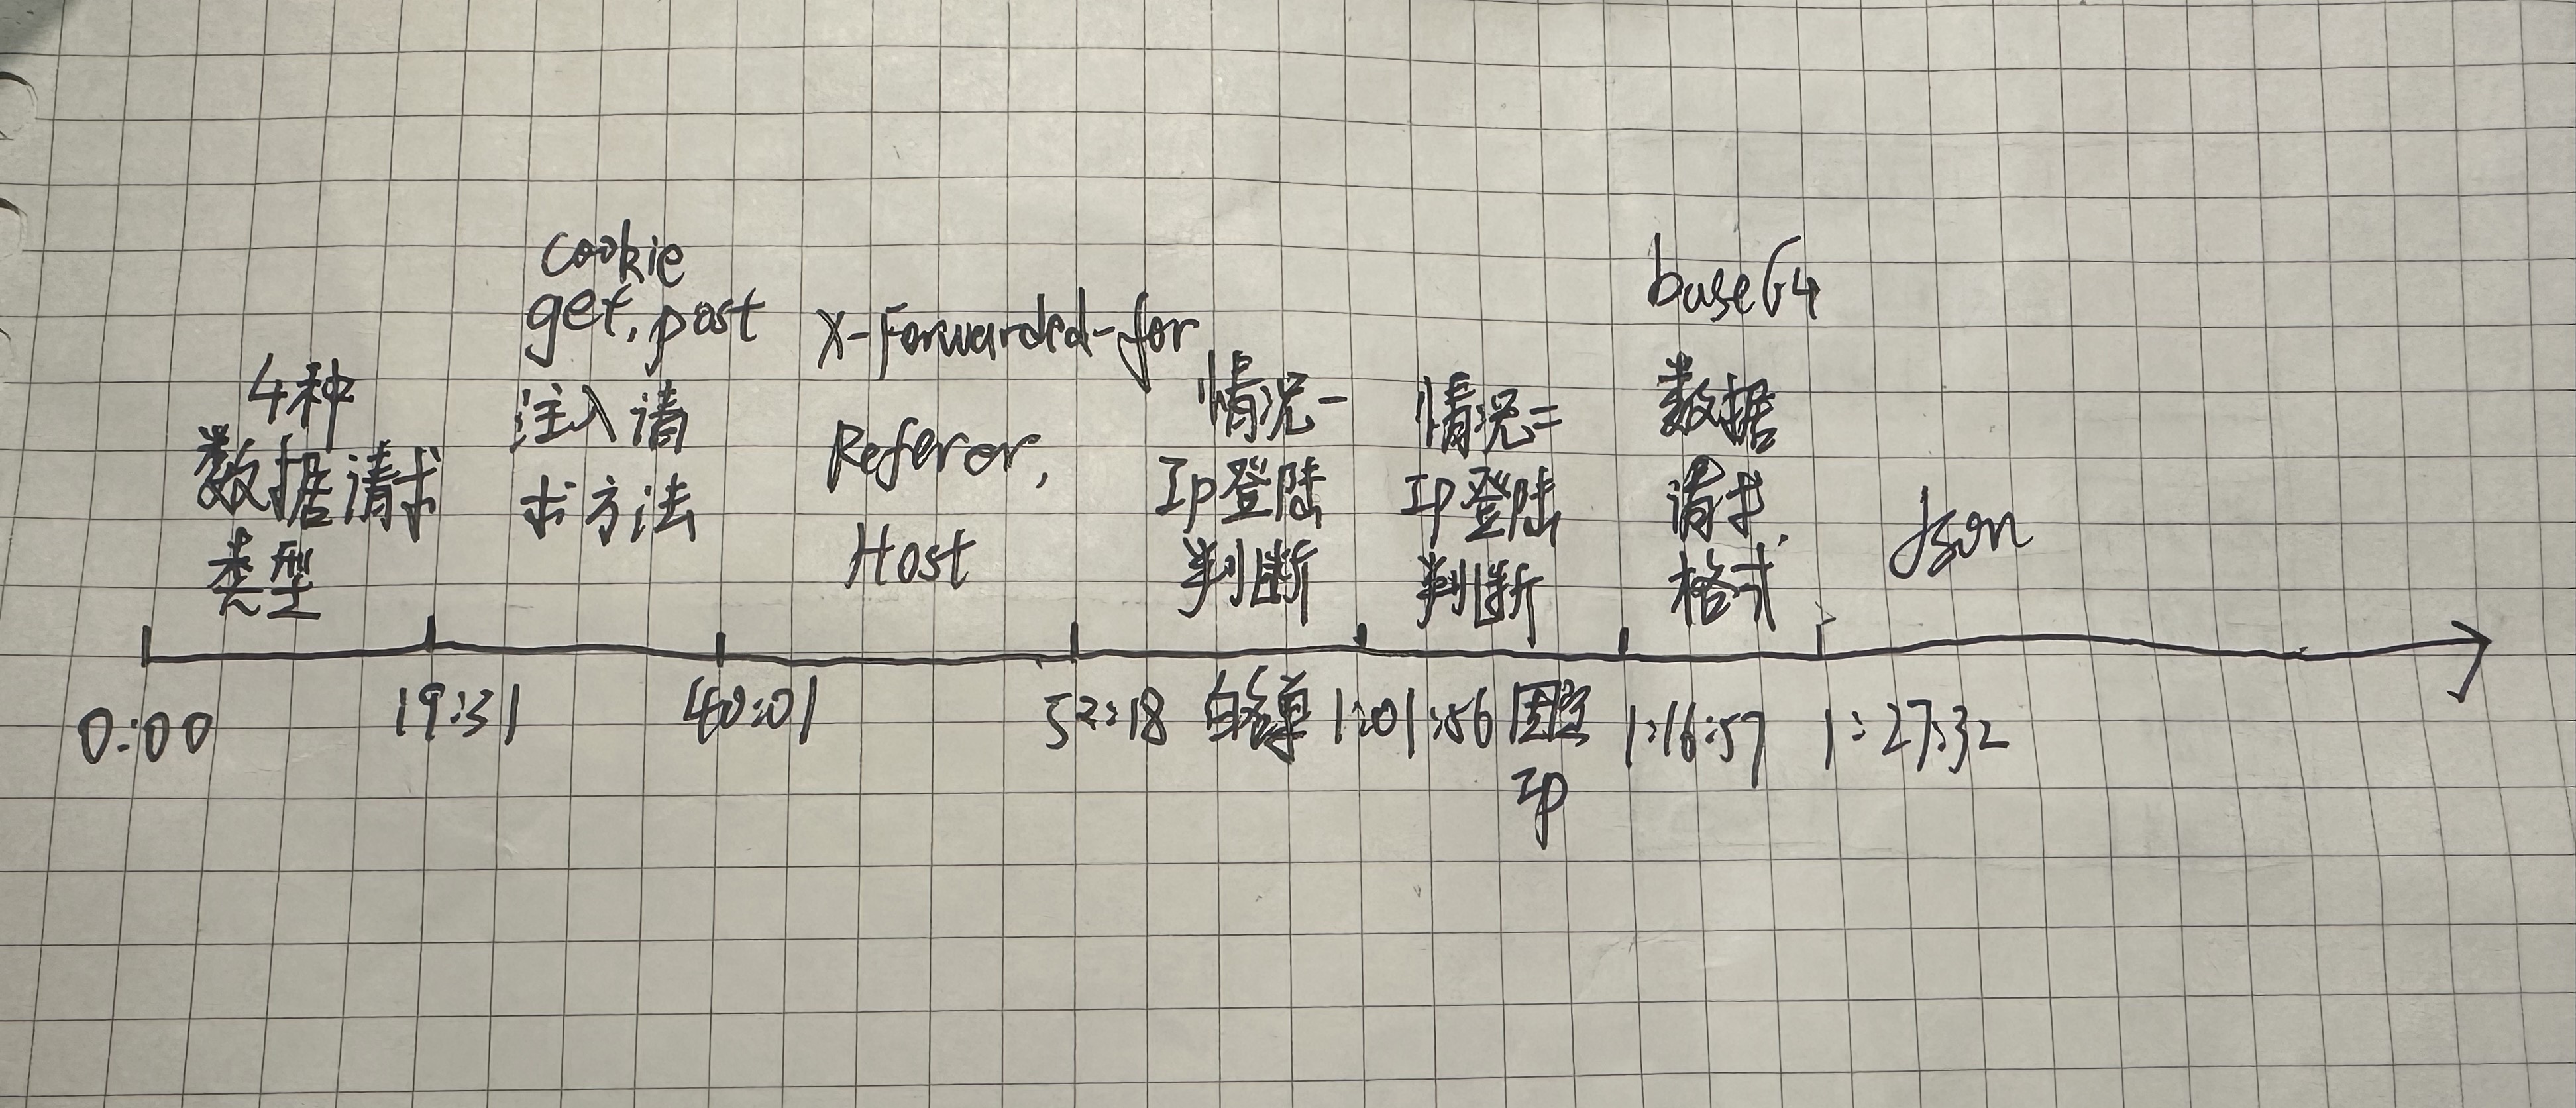 4种
数据请求
类型
cookie
get, post
注入请
求方法
X-Forwarded-for
Referor,
Host
情况一
Ip登陆
判断
情况二
Ip登陆
判断
base64
数据
请求,
格式
Json
0:00
19:31
40:01
52:18
白名单
1:01:56
固定
Ip
1:16:57
1:27:32